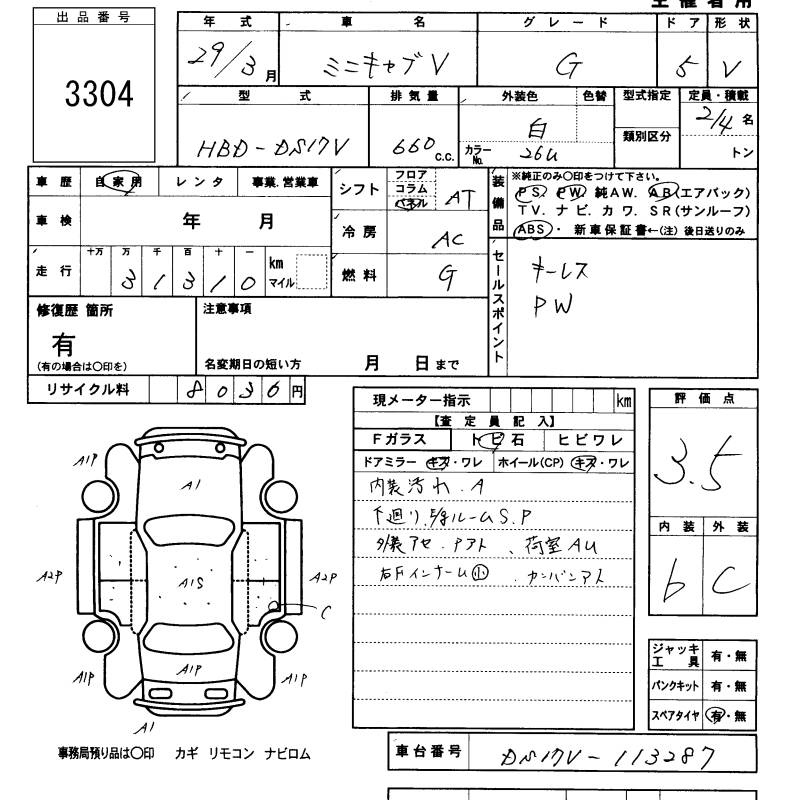 主催者用
出品番号
3304
年式 車名 グレード ドア 形状
29/3月 ミニキャブV G 5 V
型式 排気量 外装色 色替 型式指定 定員・積載
HBD-DS17V 660 c.c. 白 カラーNo. 26U 類別区分 2/4名 トン
車歴 自家用 レンタ 事業.営業車
車検 年 月
走行 十万 万 千 百 十 一 km マイル
31310
シフト フロア コラム パネル AT
冷房 AC
燃料 G
装備品
※純正のみ〇印をつけて下さい。
PS. PW. 純AW. AB(エアバック)
TV. ナビ. カワ. SR(サンルーフ)
ABS・ 新車保証書←(注) 後日送りのみ
セールスポイント
キーレス
PW
修復歴 箇所
有
(有の場合は〇印を)
注意事項
名変期日の短い方 月 日まで
リサイクル料 8036円
現メーター指示 km
【査定員記入】
Fガラス トビ石 ヒビワレ
ドアミラー キズ・ワレ ホイール(CP) キズ・ワレ
内装汚れ.A
下廻り. ルームS.P
外装アセ.アト 、荷室AU
右Fインナーム小 .カンバンアト
評価点
3.5
内装 外装
b C
ジャッキ工具 有・無
パンクキット 有・無
スペアタイヤ 有・無
A1P A1 A1P
A2P A1S A2P
C
A1P A1P A1P
A1
事務局預り品は〇印 カギ リモコン ナビロム
車台番号 DS17V-113287